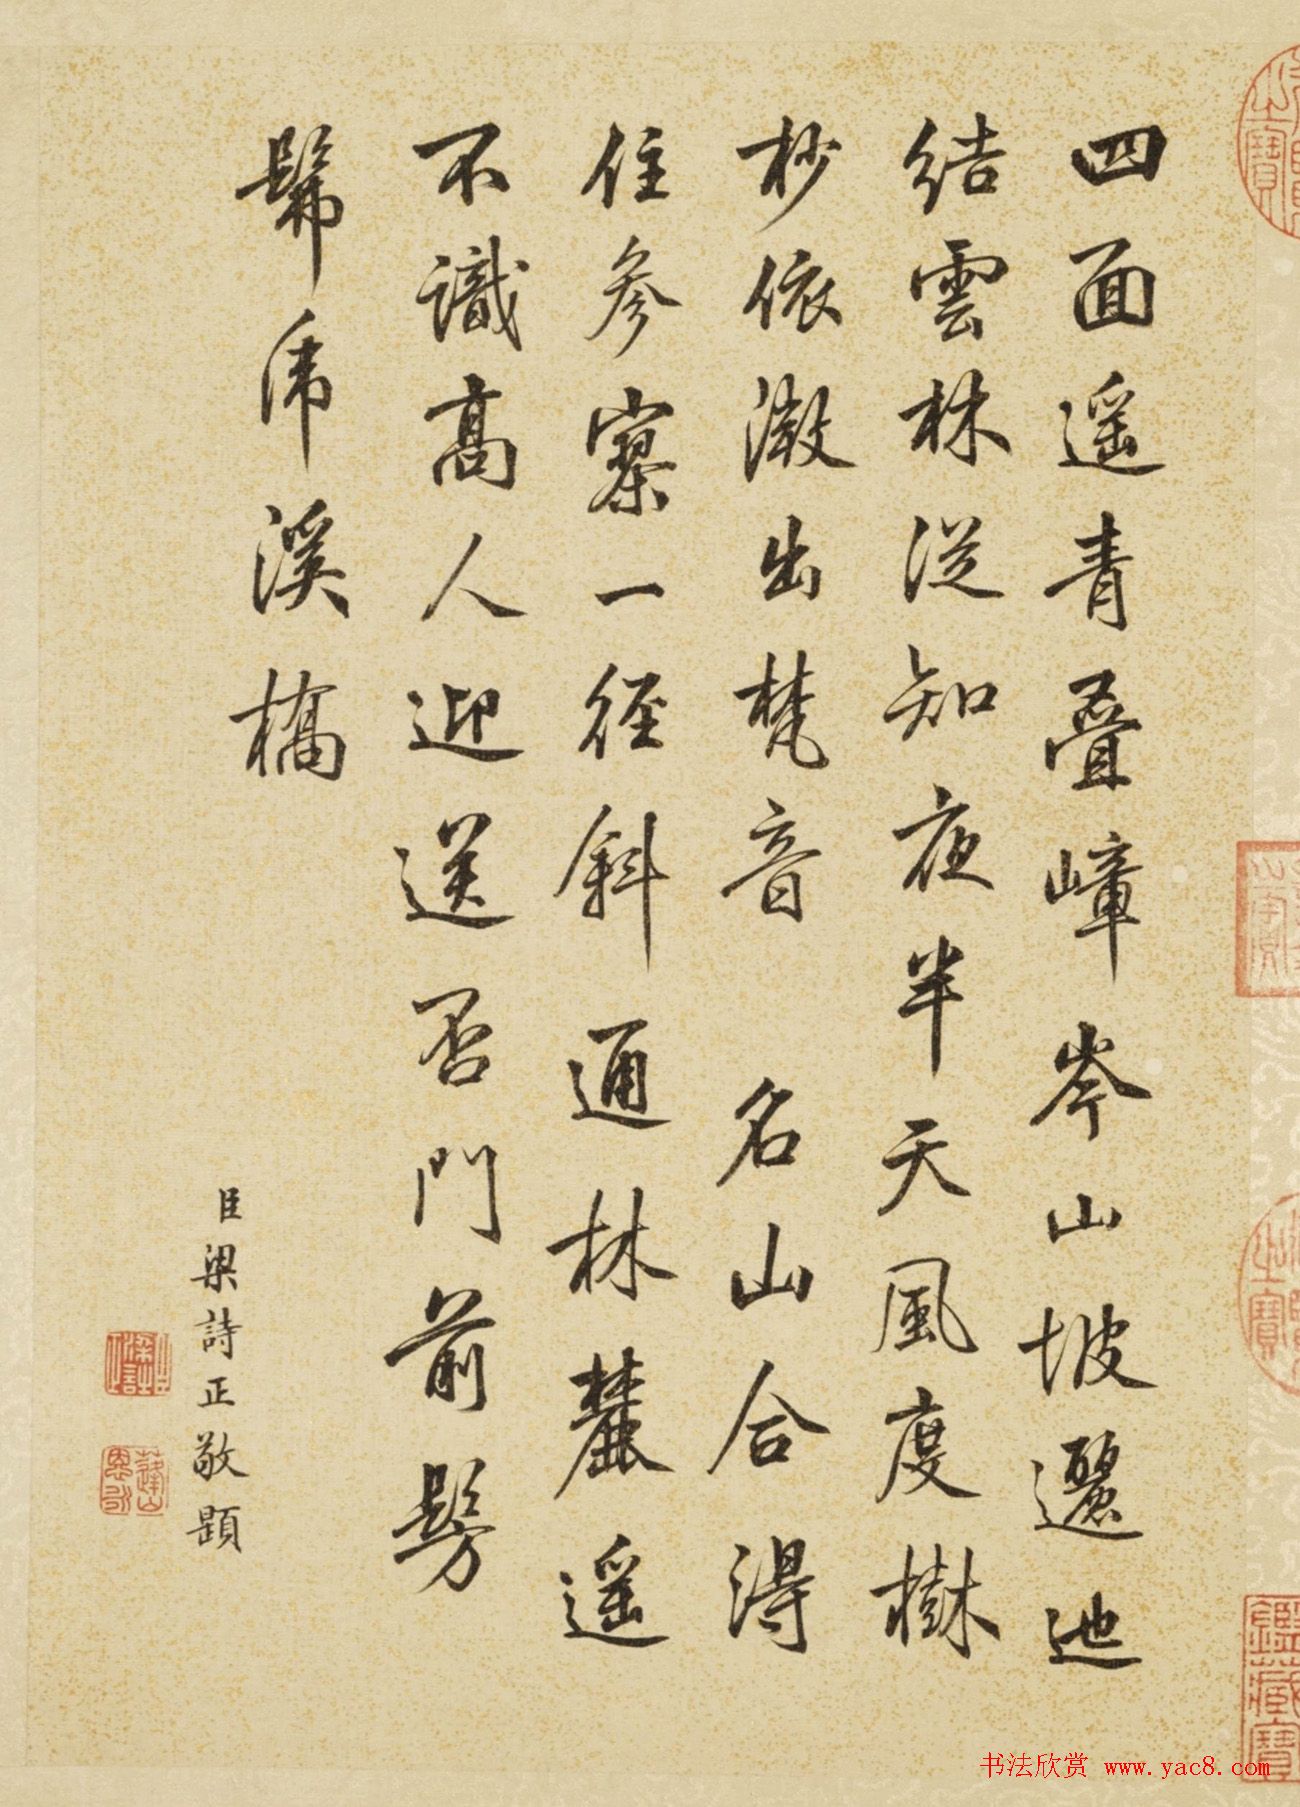 四面遥青叠嶂岑山坡邐迆
結雲林從知夜半天風度樹
杪依微出梵音 名山合得
住參寥一徑斜通林麓遥
不識高人迎送否門前髣
髴虎溪橋
臣梁詩正敬題
之寶
之寶
鑑藏寶
书法欣赏 www.yac8.com